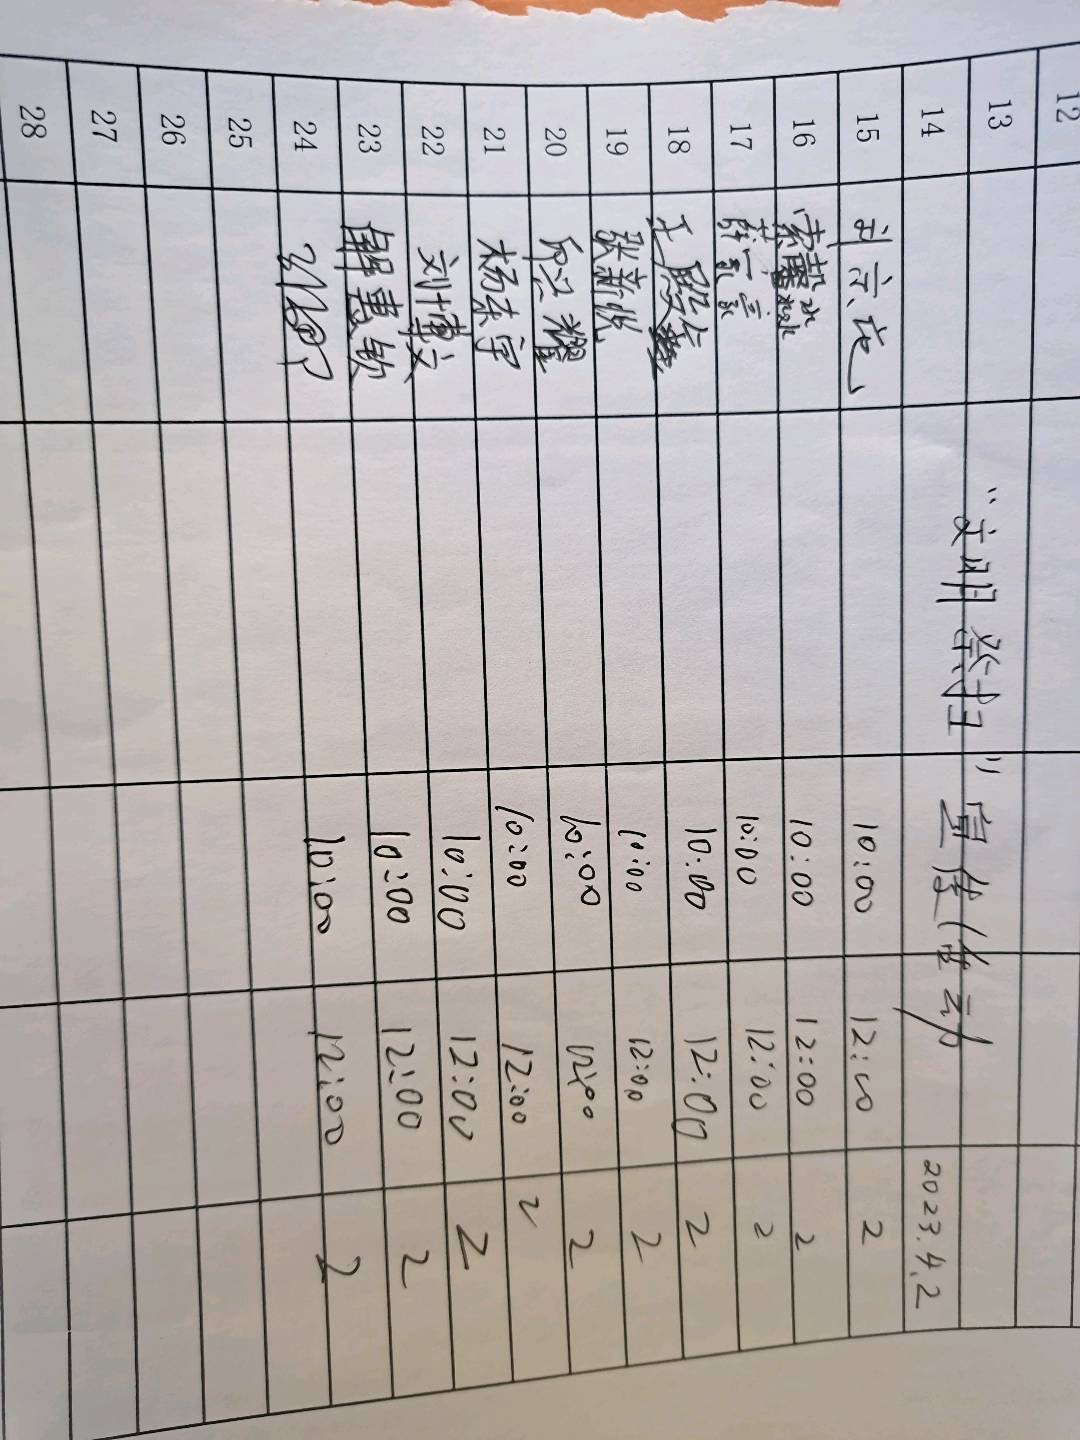 12
13
"文明祭扫"宣传活动
14 2023.4.2
15 10:00 12:00 2
16 10:00 12:00 2
17 薛一豪 10:00 12:00 2
18 王殿鑫 10:00 12:00 2
19 张新悦 10:00 12:00 2
20 耀 10:00 12:00 2
21 杨东宇 10:00 12:00 2
22 刘博文 10:00 12:00 2
23 解惠钦 10:00 12:00 2
24 10:00 12:00 2
25
26
27
28